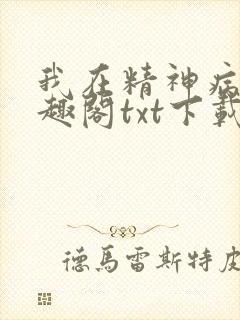 我在精神病
趣阁txt下载
德馬雷斯特皮